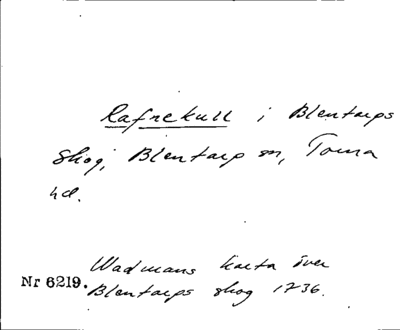 Rafnekull i Blentarps
skog, Blentarp sn, Torna
hd.
Wadmans karta över
Nr 6219.
Blentarps skog 1736.